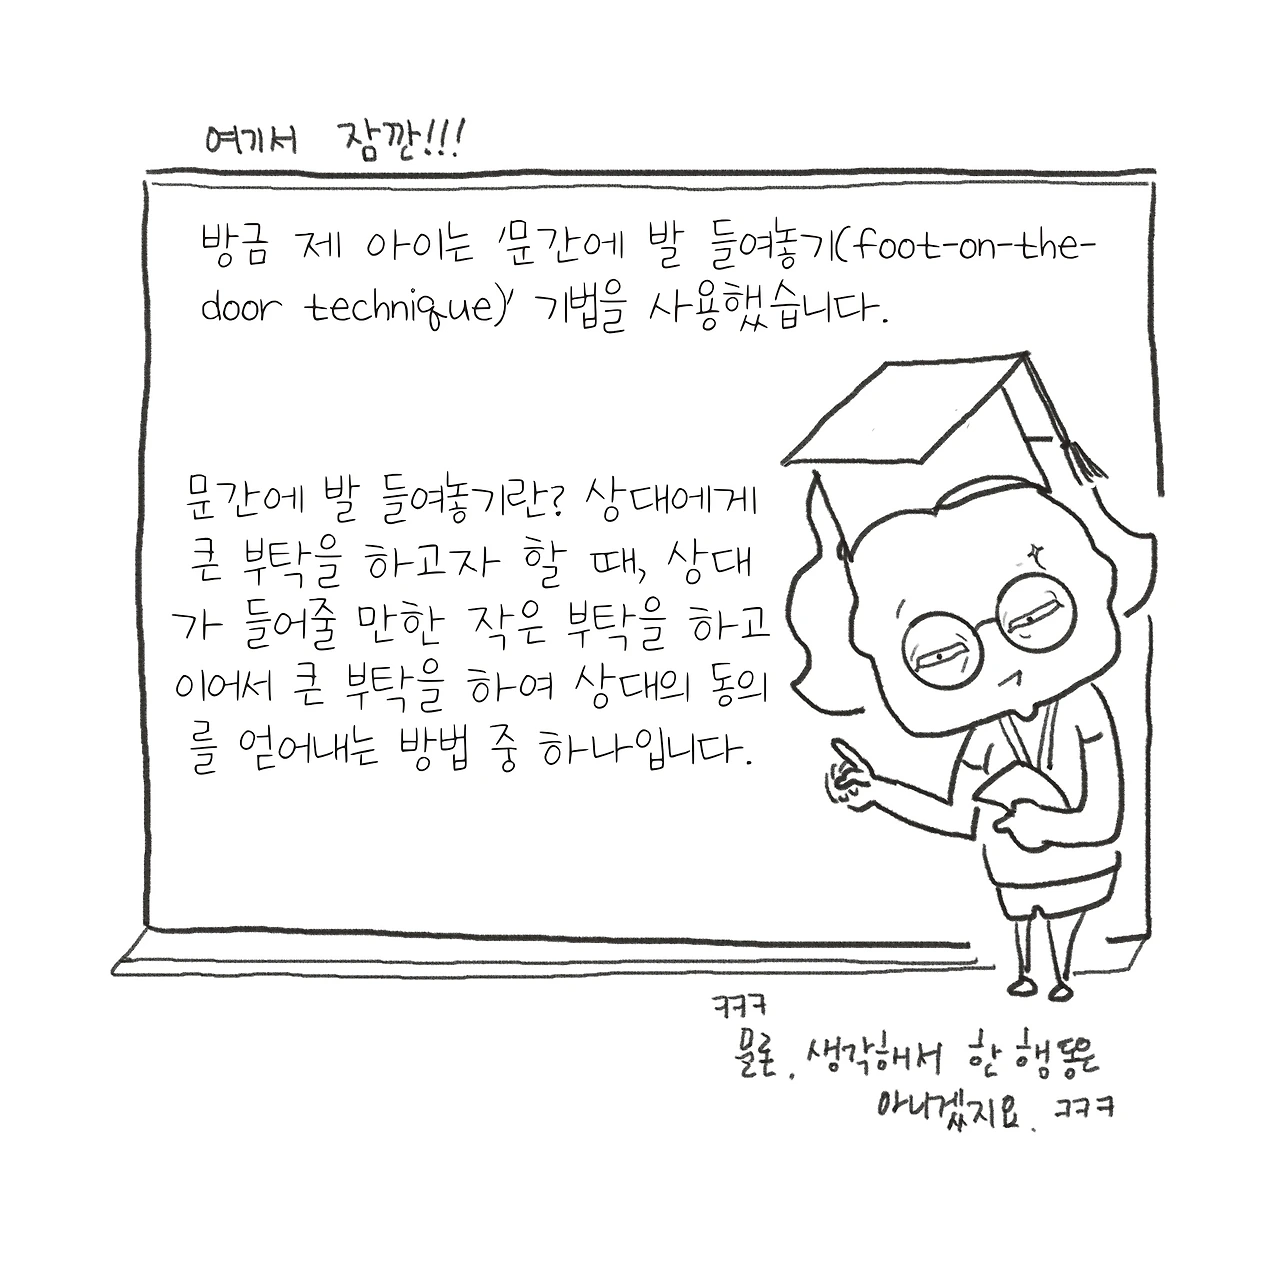 여기서 잠깐!!!
방금 제 아이는 '문간에 발 들여놓기(foot-on-the-
door technique)' 기법을 사용했습니다.
문간에 발 들여놓기란? 상대에게
큰 부탁을 하고자 할 때, 상대
가 들어줄 만한 작은 부탁을 하고
이어서 큰 부탁을 하여 상대의 동의
를 얻어내는 방법 중 하나입니다.
ㅋㅋㅋ
물론, 생각해서 한 행동은
아니겠지요. ㅋㅋㅋ